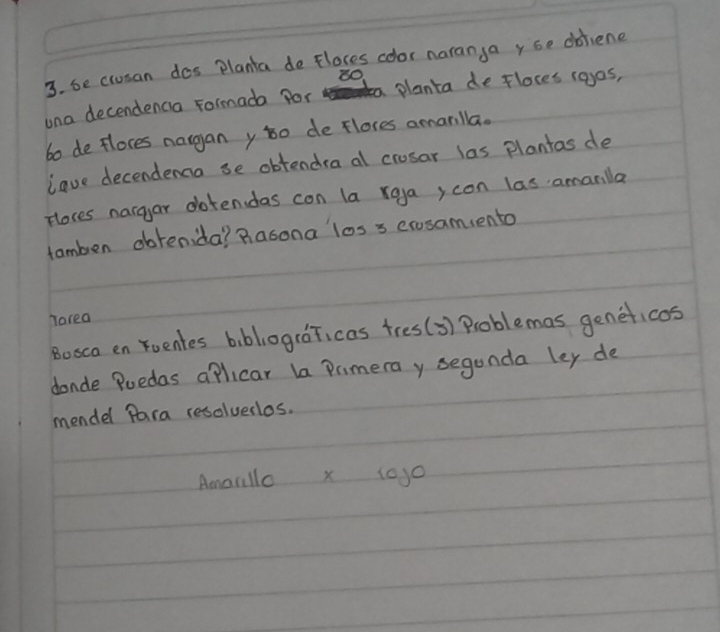 3. Se crusan dos Planta de Flores color naranja y se obtiene
una decendencia Formada Por 30 planta de Flores rojas,
60 de flores nargan y 30 de Flores amarilla.
¿que decendencia se obtendra al crusar las Plantas de
Flores narajar obtenidas con la roja y con las amarilla
tambien obtenida? Rasona los 3 crusamiento
Tarea
Busca en Fuentes bibliográficas tres(3) Problemas genéticos
donde Puedas aPlicar la Primera y segunda ley de
mendel Para resolverlos.
Amarillo x rojo